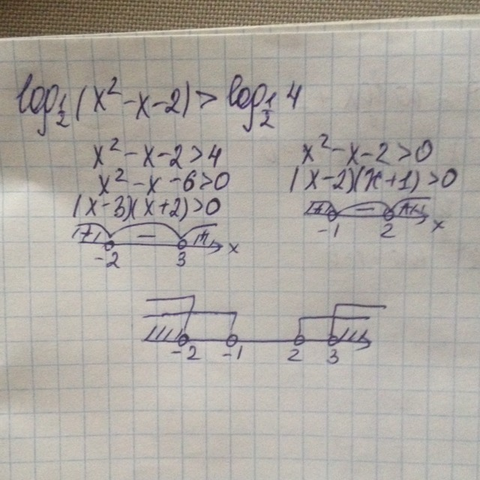 log₁/₂(x²-x-2)>log₁/₂4
x²-x-2>4
x²-x-6>0
(x-3)(x+2)>0
+ - +
-2 3 x
x²-x-2>0
(x-2)(x+1)>0
+ - +
-1 2 x
-2 -1 2 3